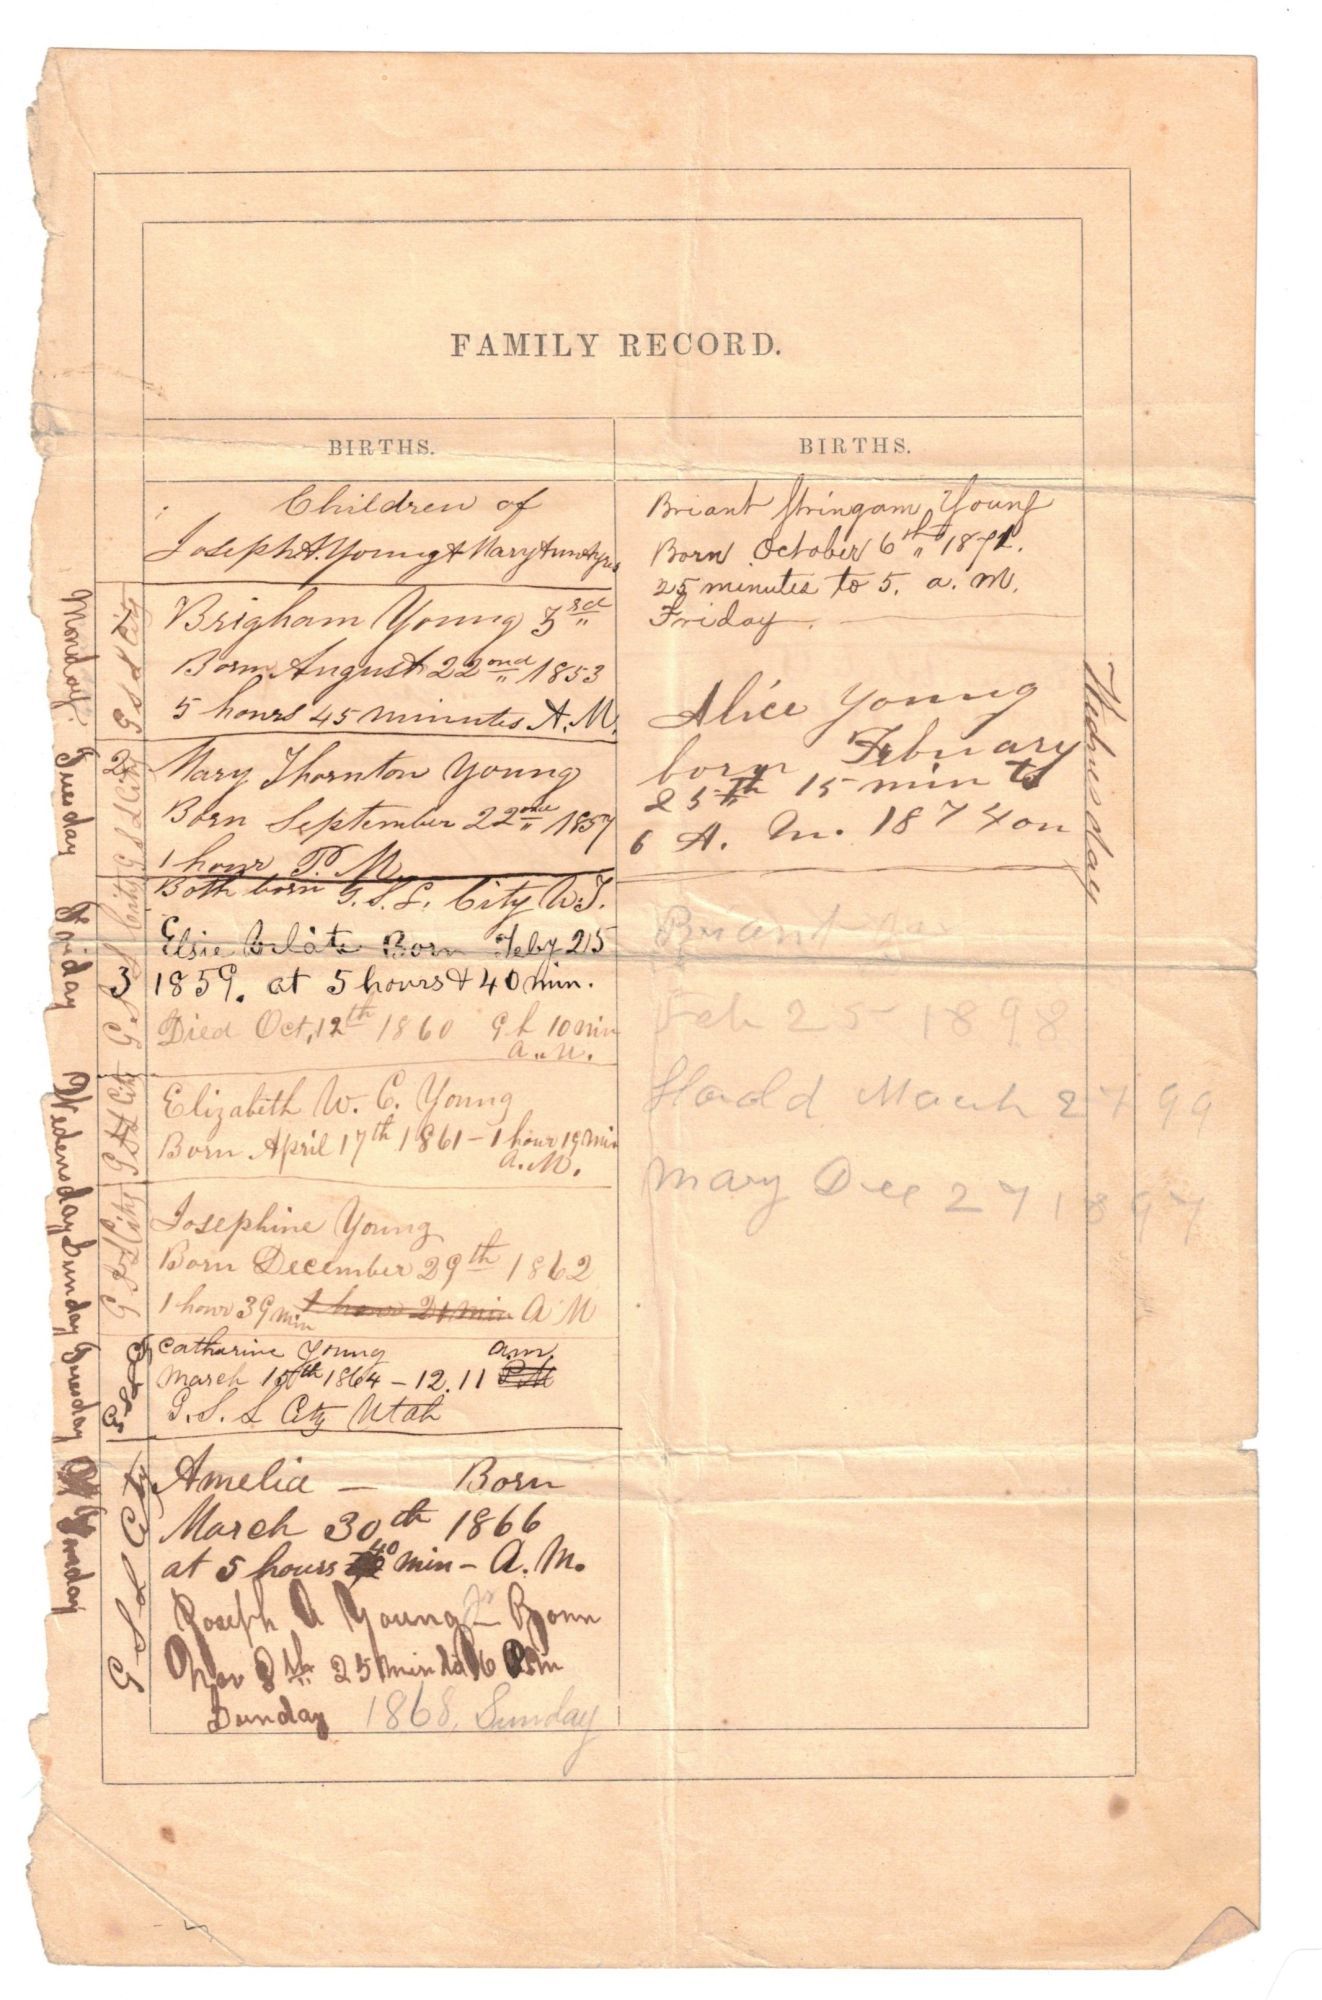 FAMILY RECORD.
BIRTHS.
Children of
Joseph A. Young & Mary Ann Ayres
Brigham Young 3rd
Born August 22nd 1853
5 hours 45 minutes A.M.
Mary Thornton Young
Born September 22nd 1857
1 hour P.M.
Both born G.S.L. City U.T.
Elsie Born Feby 25
1859. at 5 hours & 40 min.
Died Oct, 12th 1860 9 h 10 min
a.m.
Elizabeth W. C. Young
Born April 17th 1861 – 1 hour 19 min
A.M.
Josephine Young
Born December 29th 1862
1 hour 39 min 1 hour 21 min A M
Catharine Young am
March 15th 1864 – 12.11 P.M
G.S.L City Utah
Amelia — Born
March 30th 1866
at 5 hours 40 min – A.M.
Joseph A Young Jr Born
Nov 8th 25 min to 6 Pm
Sunday 1868, Sunday
BIRTHS.
Briant Stringam Young
Born October 6th 1871.
25 minutes to 5. a.m.
Friday.
Alice Young
born February
25th 15 min to
6 A.M. 1874 on
Wednesday
Briant
Feb 25 1898
Harold March 27 99
Mary Dec 27 1897
Monday.
Tuesday
Friday
Wedensday
Sunday
Tuesday
G S L City
2 G S L City
3 G.S.L City
G S L City
G S L City
G S L C
G S L City